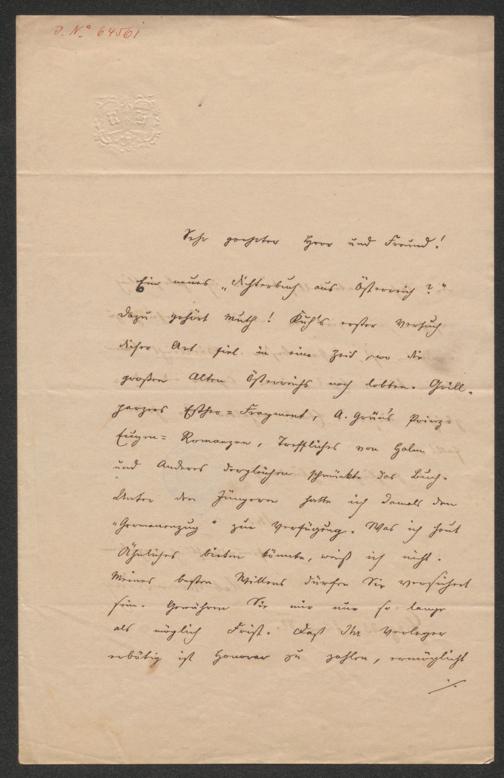 J. N.º 64561
Sehr geehrter Herr und Freund!
Ein neues „Dichterbuch aus Österreich?“
Dazu gehört Muth! Kuh's erster Versuch
dieser Art fiel in eine Zeit, wo die
großen Alten Österreichs noch lebten. Grill-
parzers Esther=Fragment, A. Grün's Prinz
Eugen=Romanzen, Treffliches von Halm
und Anderes dergleichen schmückte das Buch.
Unter den Jüngeren hatte ich damals den
„Germanenzug“ zur Verfügung. Was ich heut
Ähnliches bieten könnte, weiß ich nicht.
Meines besten Willens dürfen Sie versichert
sein. Gewähren Sie mir nur so lange
als möglich Frist. Daß Ihr Verleger
erbötig ist Honorar zu zahlen, ermöglicht
./.